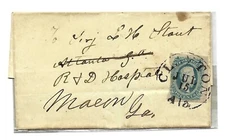 To Serj L H Stout
Atlanta Ga
R & D Hospital
Macon
Ga.
TON
JUL
Ala